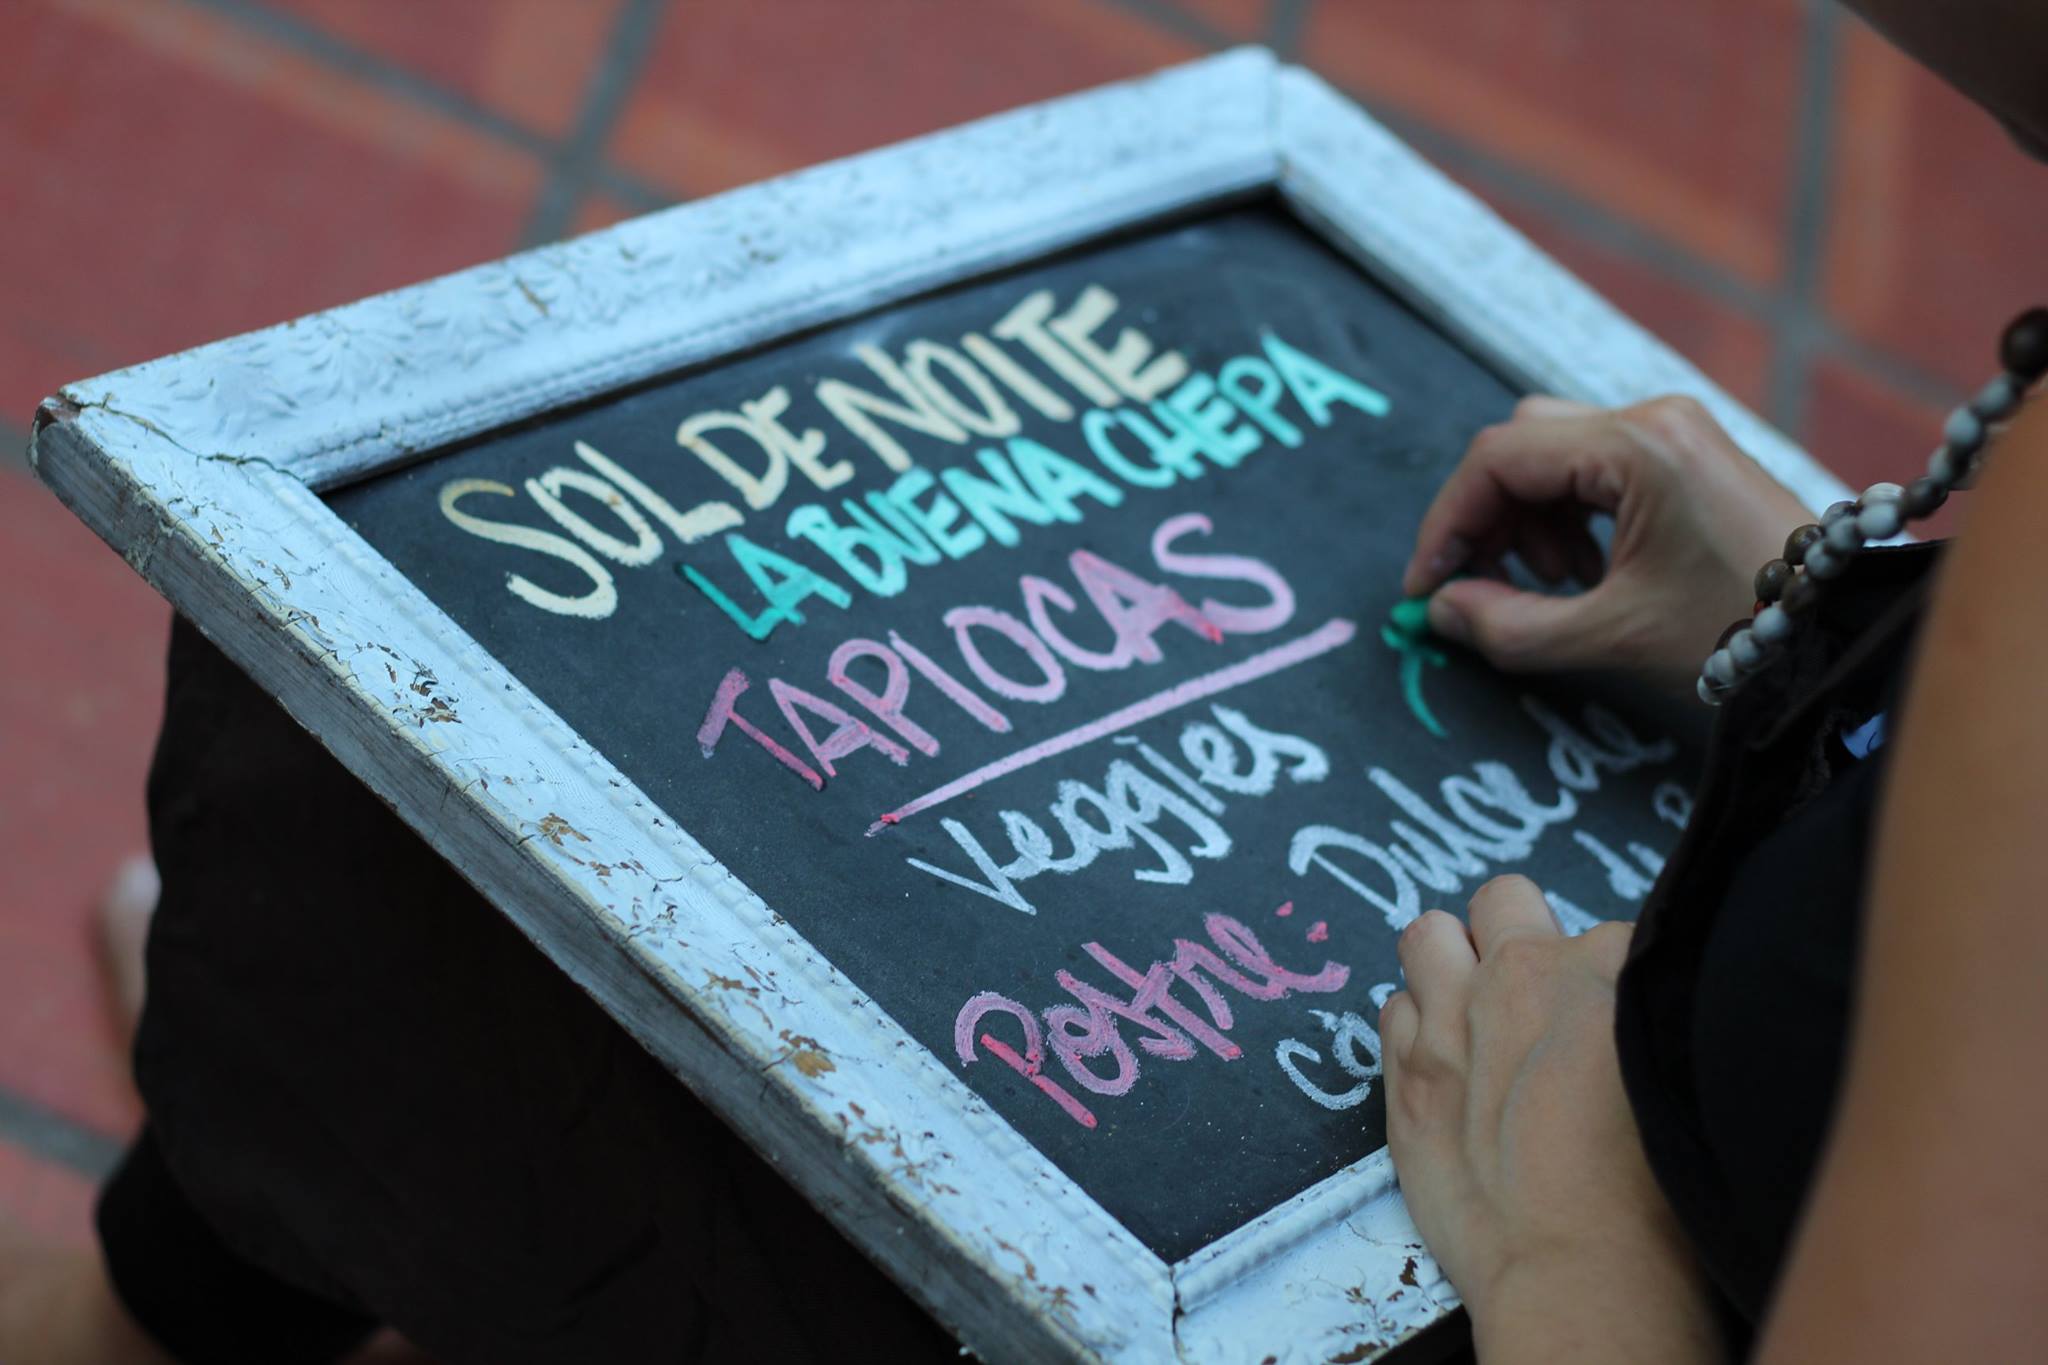 SOL DE NOITE
LA BUENA CHEPA
TAPIOCAS
Veggies
Postre: Dulce de